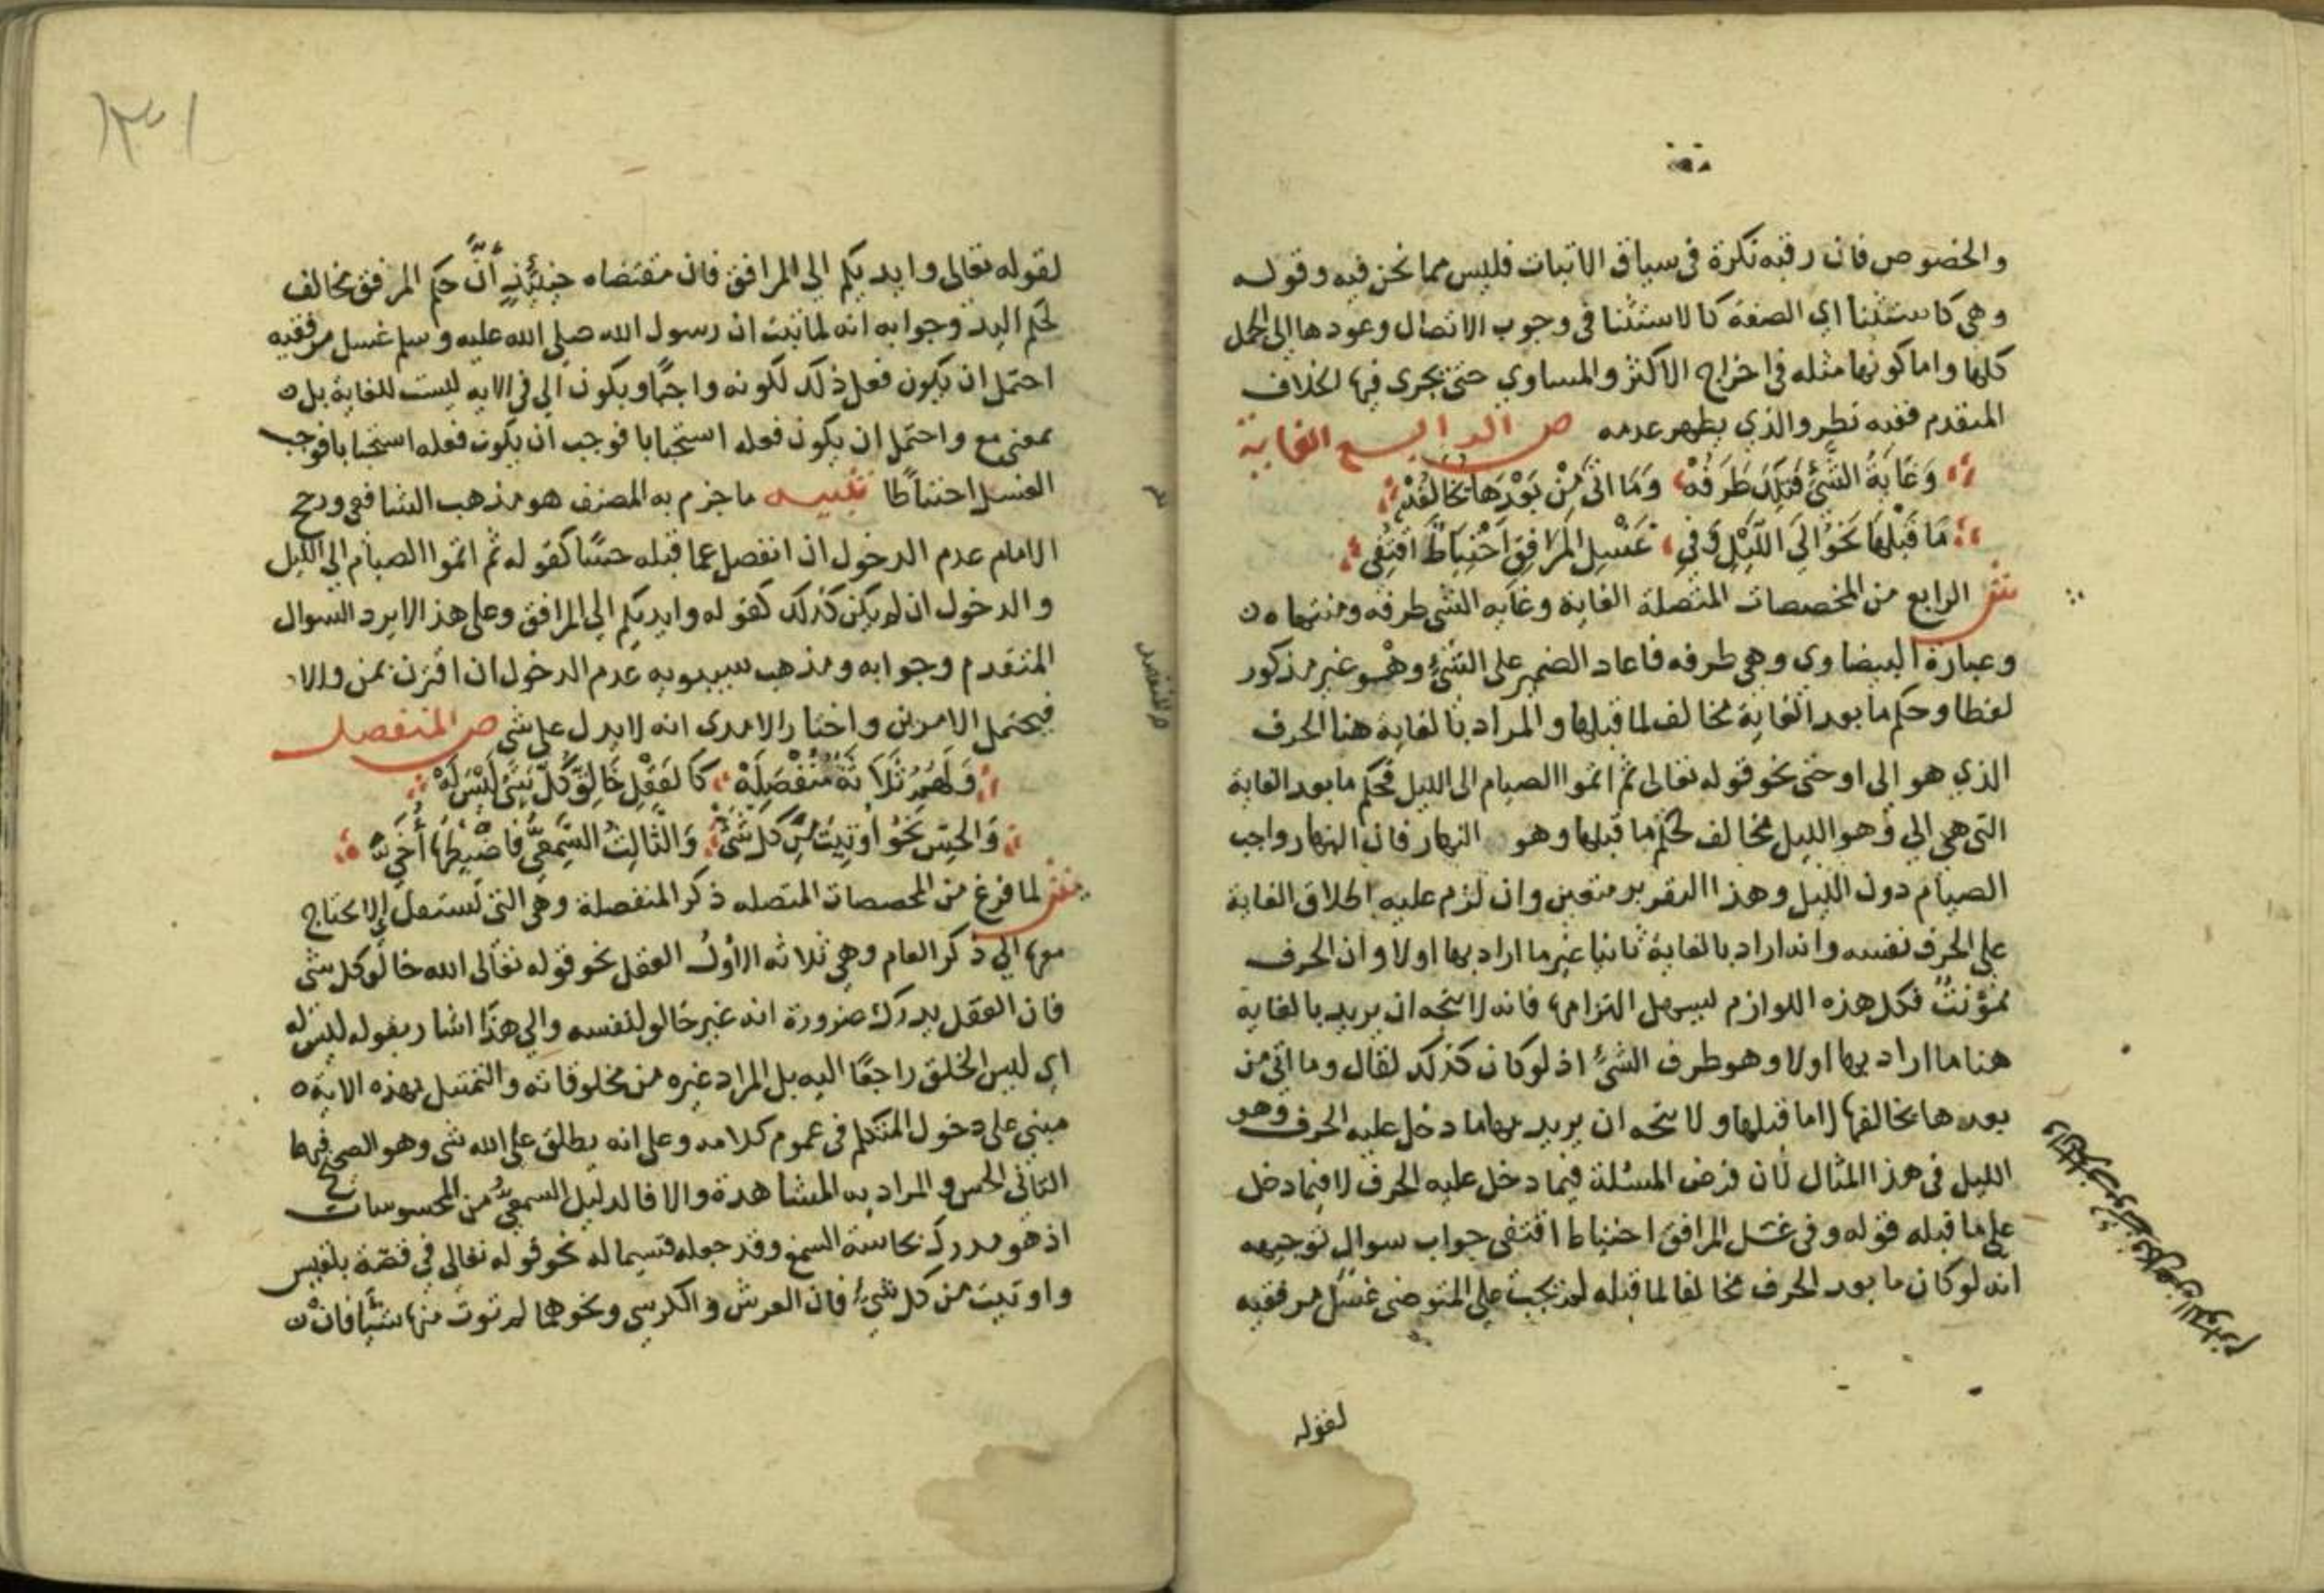 والخصوص فان رقبه نكرة في سياق الاثبات فليس مما نحن فيه وقوله
وهي كاستثنا اي الصفة كالاستثنا في وجوب الاتصال وعودها الى الجمل
كلها واما كونها مثله في اخراج الاكثر والمساوي حتى يجرى فيها الخلاف
المتقدم ففيه نظر والذي يظهر عدمه ص الرابع الغاية
وَغَايَةُ الشَّيْ فَتِلكَ طَرَفُهْ وَمَا اتىَ مِنْ بَعْدِهَا تخَالِفُهْ
مَا قَبْلَهَا نَحْوُ الَى اللَّيْلِ وَفي غَسْلِ المَرَافِقِ احْتِيَاطٌ اقتُفِى
ش الرابع من المخصصات المتصلة الغاية وغايه الشي طرفه ومنتهاه
وعبارة البيضاوي وهي طرفه فاعاد الضمير على الشئ وهو غير مذكور
لفظا وحكم ما بعد الغاية مخالف لما قبلها والمراد بالغاية هنا الحرف
الذي هو الى او حتى نحو قوله تعالى ثم اتموا الصيام الى الليل فحكم ما بعد الغاية
التي هي الي وهو الليل مخالف لحكم ما قبلها وهو النهار فان النهار واجب
الصيام دون الليل وهذا التقرير متعين وان لزم عليه اطلاق الغاية
على الحرف نفسه وانه اراد بالغاية ثانيا غير ما اراد بها اولا وان الحرف
مؤنث فكل هذه اللوازم ليسهل التزامها فانه لا يتجه ان يريد بالغاية
هنا ما اراد بها اولا وهو طرف الشئ اذ لو كان كذلك لقال وما اتى من
بعدها يخالفها لا ما قبلها ولا يتجه ان يريد بها ما دخل عليه الحرف وهو
الليل في هذا المثال لان فرض المسئلة فيما دخل عليه الحرف لا فيما دخل
على ما قبله قوله وفي غسل المرافق احتياط اقتفى جواب سوال توجيهه
انه لو كان ما بعد الحرف مخالفا لما قبله لم يجب على المتوضى غسل مرفقيه
لقوله
لقوله تعالى وايديكم الي المرافق فان مقتضاه حينئذٍ أنَّ حكم المرفق مخالف
لحكم اليد وجوابه انه لما ثبت ان رسول الله صلى الله عليه وسلم غسل مرفقيه
احتمل ان يكون فعل ذلك لكونه واجبًا ويكون الي في الايه ليست للغاية بل
بمعنى مع واحتمل ان يكون فعله استحبابا فوجب ان يكون فعله استحبابا فوجب
الغسل احتياطا تنبيه ما جزم به المصنف هو مذهب الشافعي ورجح
الامام عدم الدخول ان انفصل عما قبله حسًا كقوله ثم اتموا الصيام الى الليل
والدخول ان لم يكن كذلك كقوله وايديكم الي المرافق وعلى هذا لا يرد السوال
المتقدم وجوابه ومذهب سيبويه عدم الدخول ان اقترن بمن والا
فيحتمل الامرين واختار الامدى انه لا يدل على شي ص المنفصل
وَلَهُمُ ثَلَاثَةٌ مُنْفَصِلَهْ كَالعَقْلِ خَالِقُ كُلِّ شَيْ لَيْسَ لَهْ
وَالحِسِّ نَحْوُ اُوتِيَتْ مِن كُلِّ شَيْ وَالثَّالِثُ السَّمْعِيُّ فَاضْبِطْهَا أُخَيْ
ش لما فرغ من المخصصات المتصله ذكر المنفصلة وهي التي تستقل لا يحتاج
معها الي ذكر العام وهي ثلاثه الأول العقل نحو قوله تعالى الله خالق كل شي
فان العقل يدرك ضرورة انه غير خالق لنفسه والي هذا اشار بقوله ليس له
اي ليس الخلق راجعًا اليه بل المراد غيره من مخلوقاته والتمثيل بهذه الاية
مبني على دخول المتكلم في عموم كلامه وعلى انه يطلق على الله شي وهو الصحيح فيهما
الثاني الحس والمراد به المشاهدة والا فالدليل السمعي من المحسوسات
اذ هو مدرك بحاسة السمع وقد جعله قسيما له نحو قوله تعالى في قصة بلقيس
واوتيت من كل شئ فان العرش والكرسي ونحوهما لم توت منها شيا فان